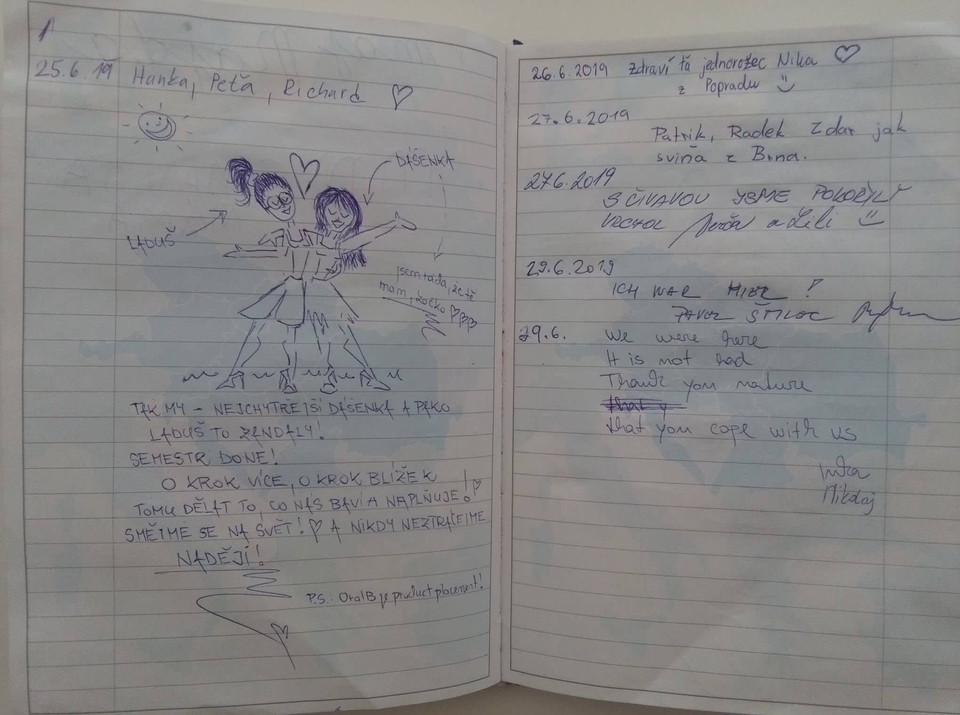 25.6.19 Hanka, Peťa, Richard
DÁŠENKA
LADUŠ
jsem ráda, že tě
mám, kočko
TAK MY – NEJCHYTŘEJŠÍ DÁŠENKA A PAKO
LADUŠ TO ZANDALY!
SEMESTR DONE!
O KROK VÍCE, O KROK BLÍŽE K
TOMU DĚLAT TO, CO NÁS BAVÍ A NAPLŇUJE!
SMĚJME SE NA SVĚT! A NIKDY NEZTRAŤEJME
NADĚJI!
P.S.: OralB je product placement!
26.6.2019 Zdraví tě jednorožec Nika
z Popradu
27.6.2019
Patrik, Radek Zdar jak
sviňa z Brna.
27.6.2019
S ČIVAVOU JSME POKOŘILI
VRCHOL a Lili
29.6.2019
ICH WAR HIER!
PAVOL
29.6. We were here
It is not bad
Thank you nature
that y
that you cope with us
Mikolaj